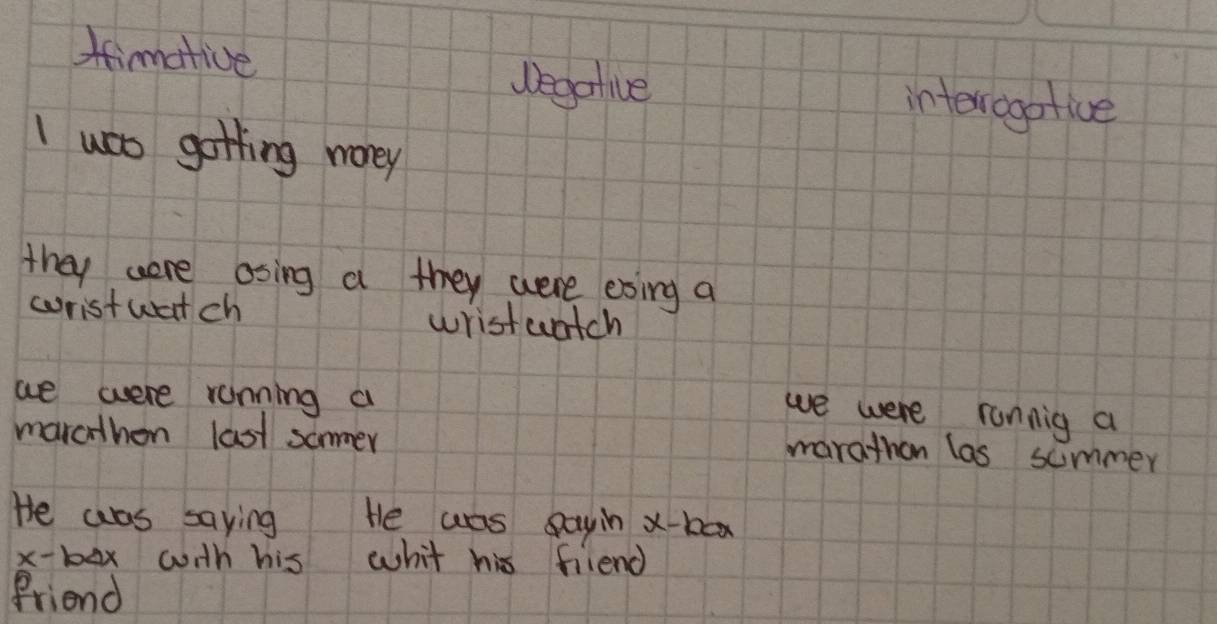 Afirmative
Negative
interrogative
I was gotting money
they were osing a
wristwatch
they were esing a
wristwatch
we were running a
marathon last sammer
we were runnig a
marathon las summer
He was saying
x-box with his
friend
He was payin x-box
whit his friend